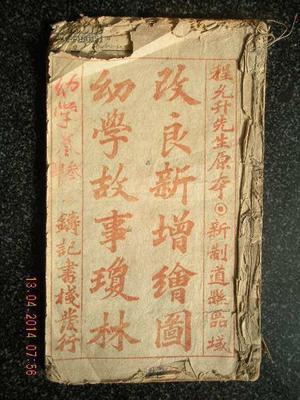 程允升先生原本◎新制道縣區域
改良新增繪圖
幼學故事瓊林
鑄記書棧發行
幼学
13-04-2014 07:56